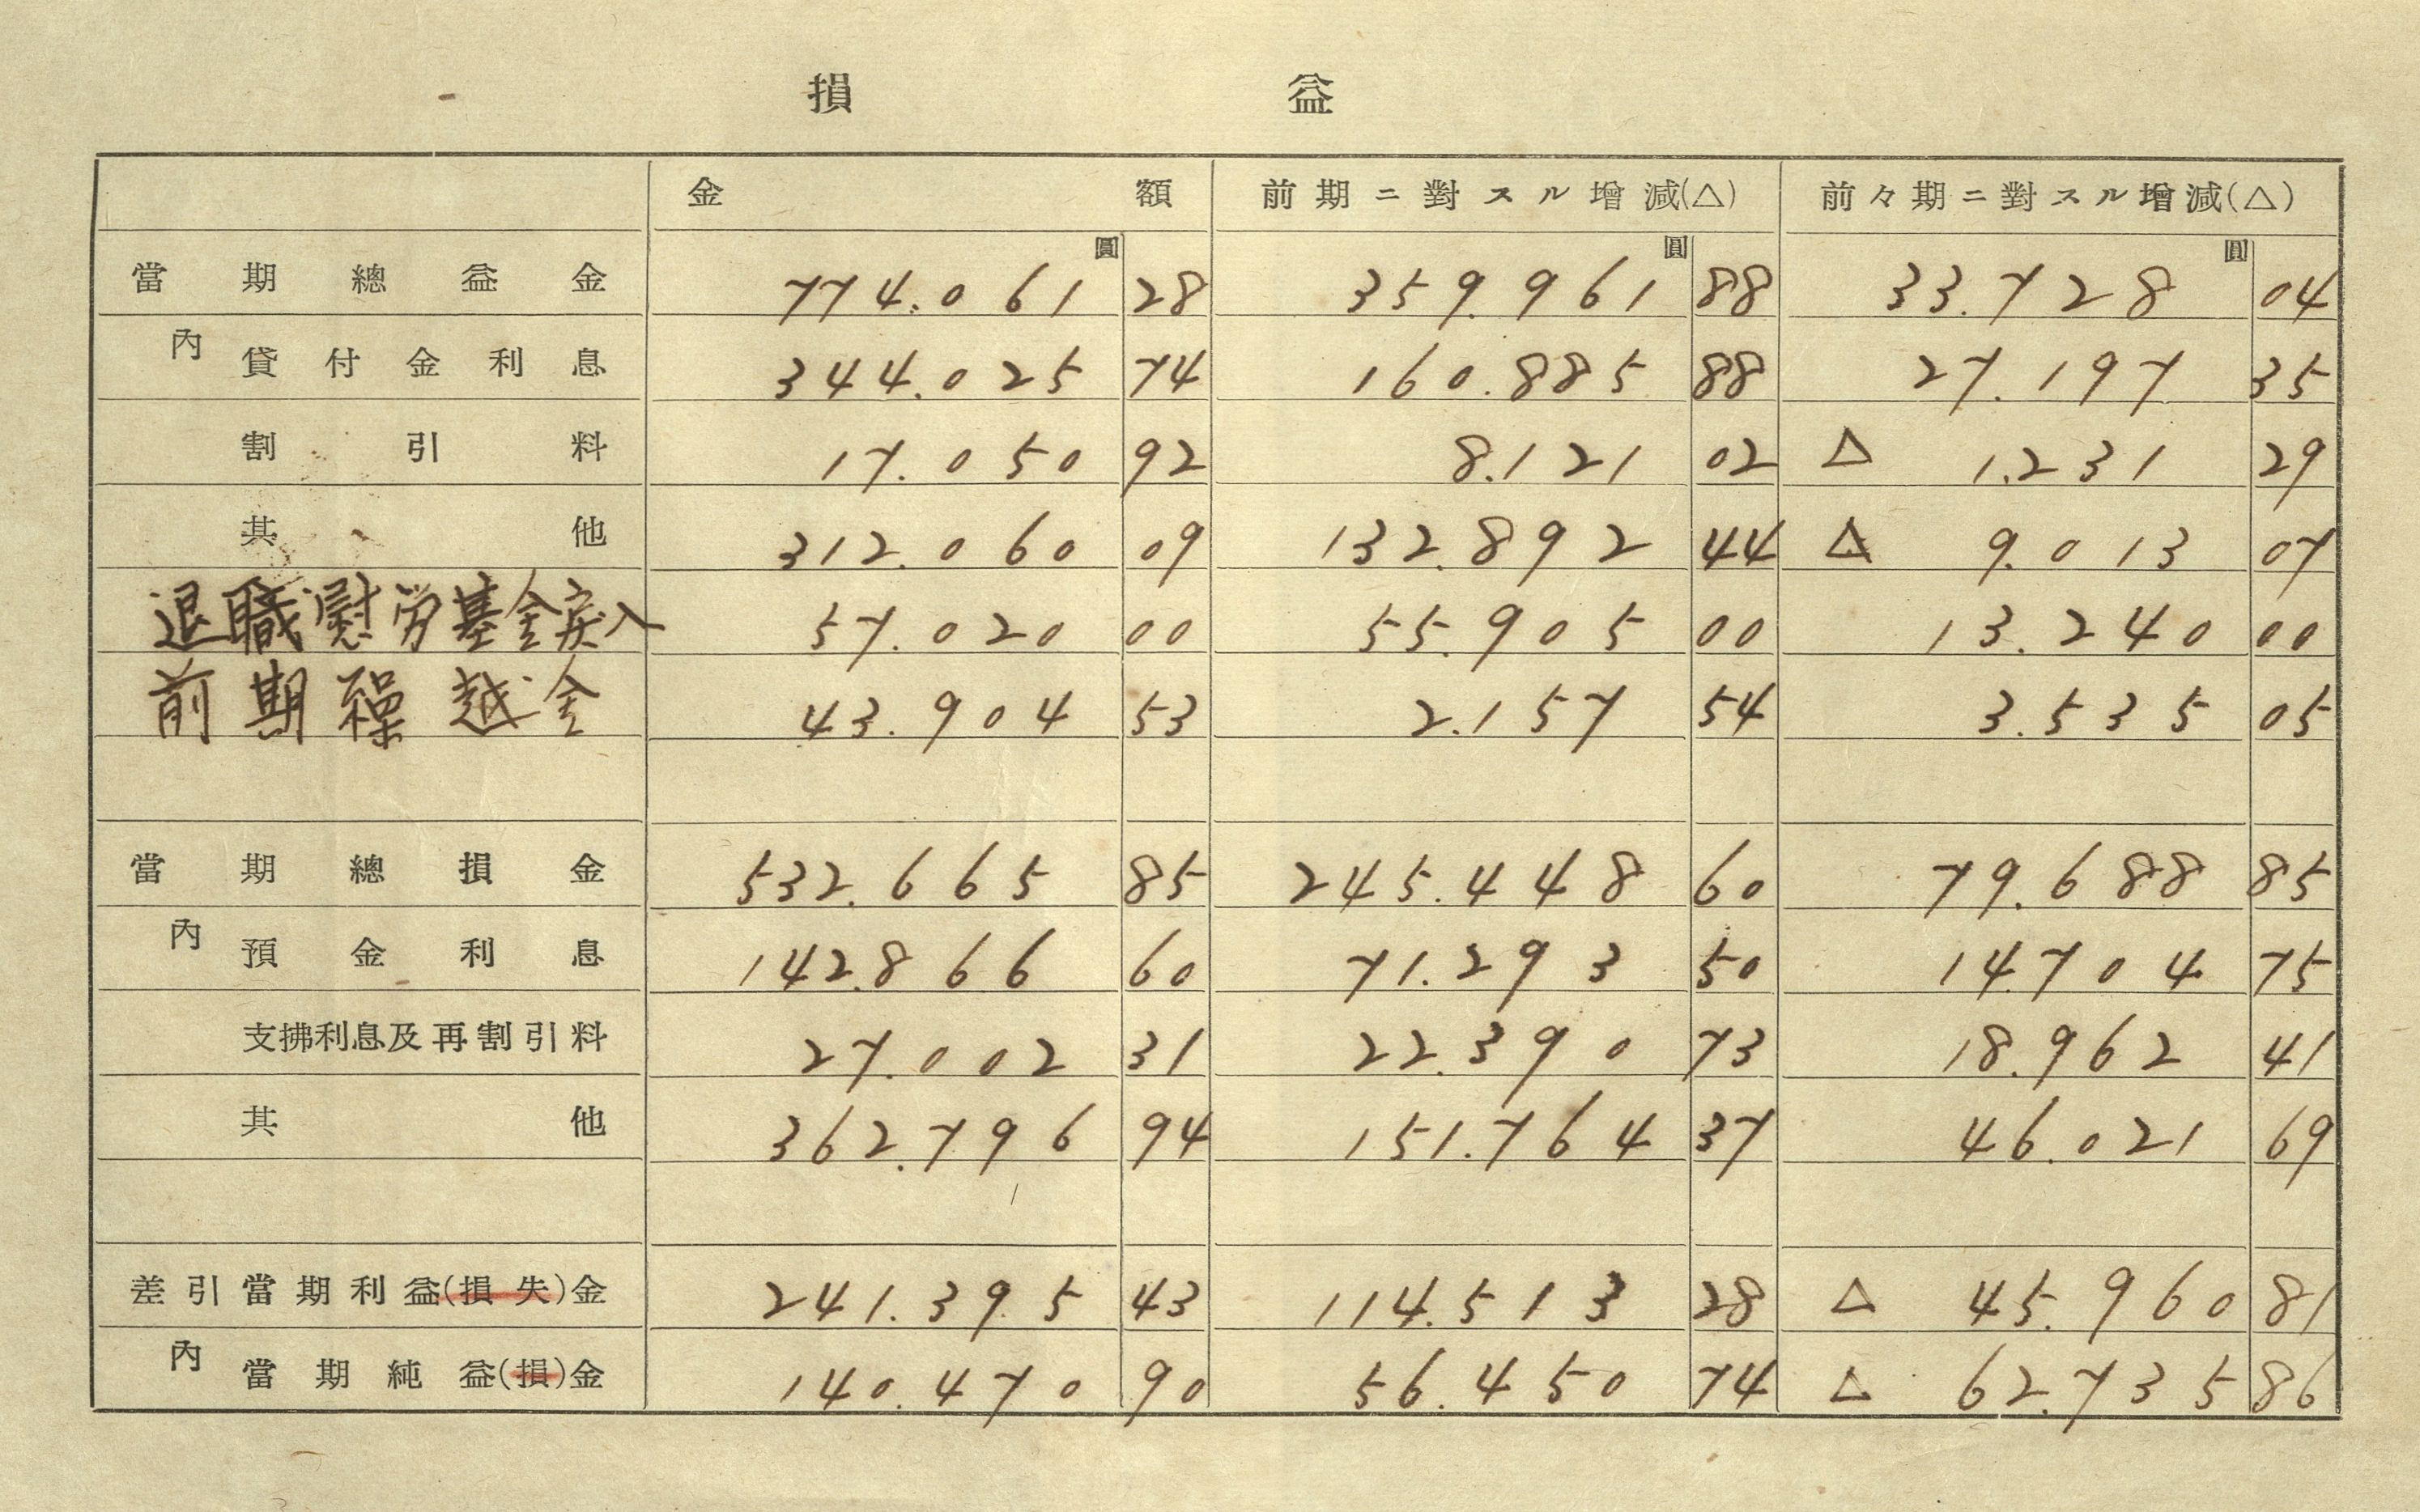 損益
金額 前期ニ對スル增減(△) 前々期ニ對スル增減(△)
當期總益金 774.061圓28 359.961圓88 33.728圓04
內 貸付金利息 344.025 74 160.885 88 27.197 35
割引料 17.050 92 8.121 02 △ 1.231 29
其他 312.060 09 132.892 44 △ 9.013 07
退職慰労基金戻入 57.020 00 55.905 00 13.240 00
前期繰越金 43.904 53 2.157 54 3.535 05
當期總損金 532.665 85 245.448 60 79.688 85
內 預金利息 142.866 60 71.293 50 14.704 75
支拂利息及再割引料 27.002 31 22.390 73 18.962 41
其他 362.796 94 151.764 37 46.021 69
差引當期利益(損失)金 241.395 43 114.513 28 △ 45.960 81
內 當期純益(損)金 140.470 90 56.450 74 △ 62.735 86